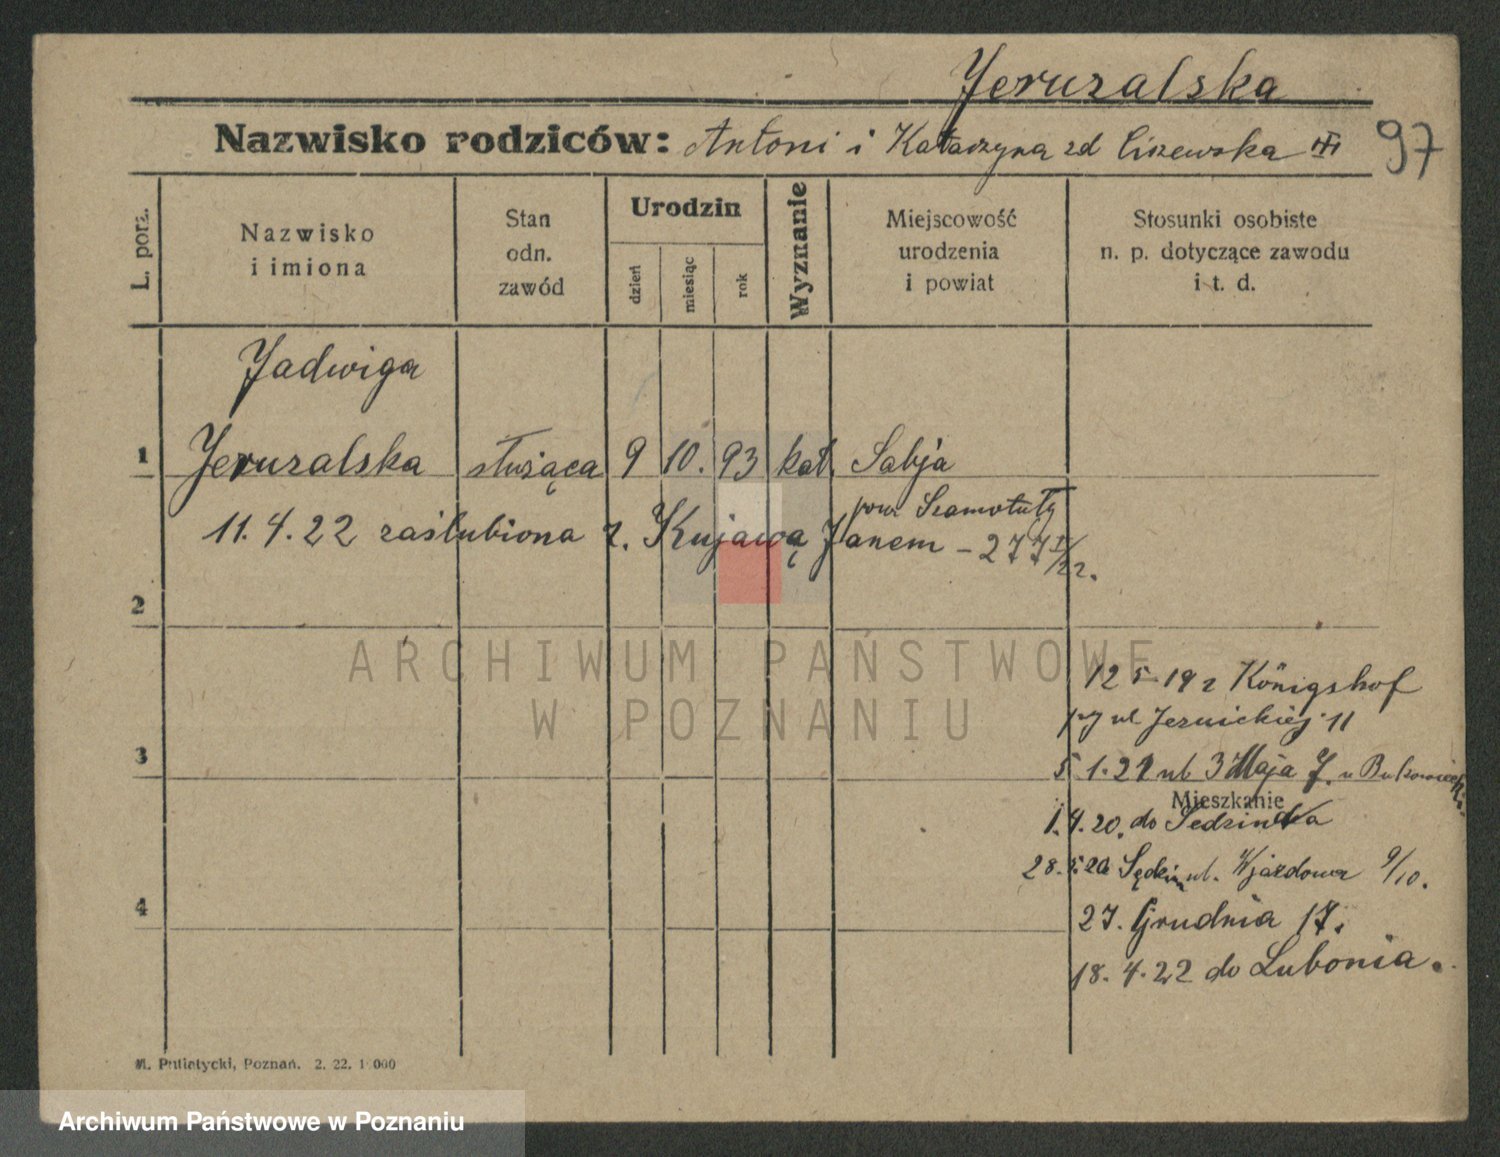 Jeruzalska
Nazwisko rodziców: Antoni i Katarzyna zd Ciszewska
97
L. porz.
Nazwisko
i imiona
Stan
odn.
zawód
Urodzin
dzień
miesiąc
rok
Wyznanie
Miejscowość
urodzenia
i powiat
Stosunki osobiste
n. p. dotyczące zawodu
i t. d.
Jadwiga
1 Jeruzalska służąca 9 10. 93 kat. Sabja
pow Szamotuły
11.4.22 zaślubiona z. Kujawą Janem - 277 I/22.
2
ARCHIWUM PAŃSTWOWE
W POZNANIU
12 5 19 z Königshof
przy ul Jezuickiej 11
3
5 1.21 ul 3 Maja 7. u
Mieszkanie
1.4.20. do
28.5.20 ul. Wjazdowa 9/10.
4
27. Grudnia 17.
18.4.22 do Lubonia.
M. Putiatycki, Poznań. 2. 22. 1 000
Archiwum Państwowe w Poznaniu